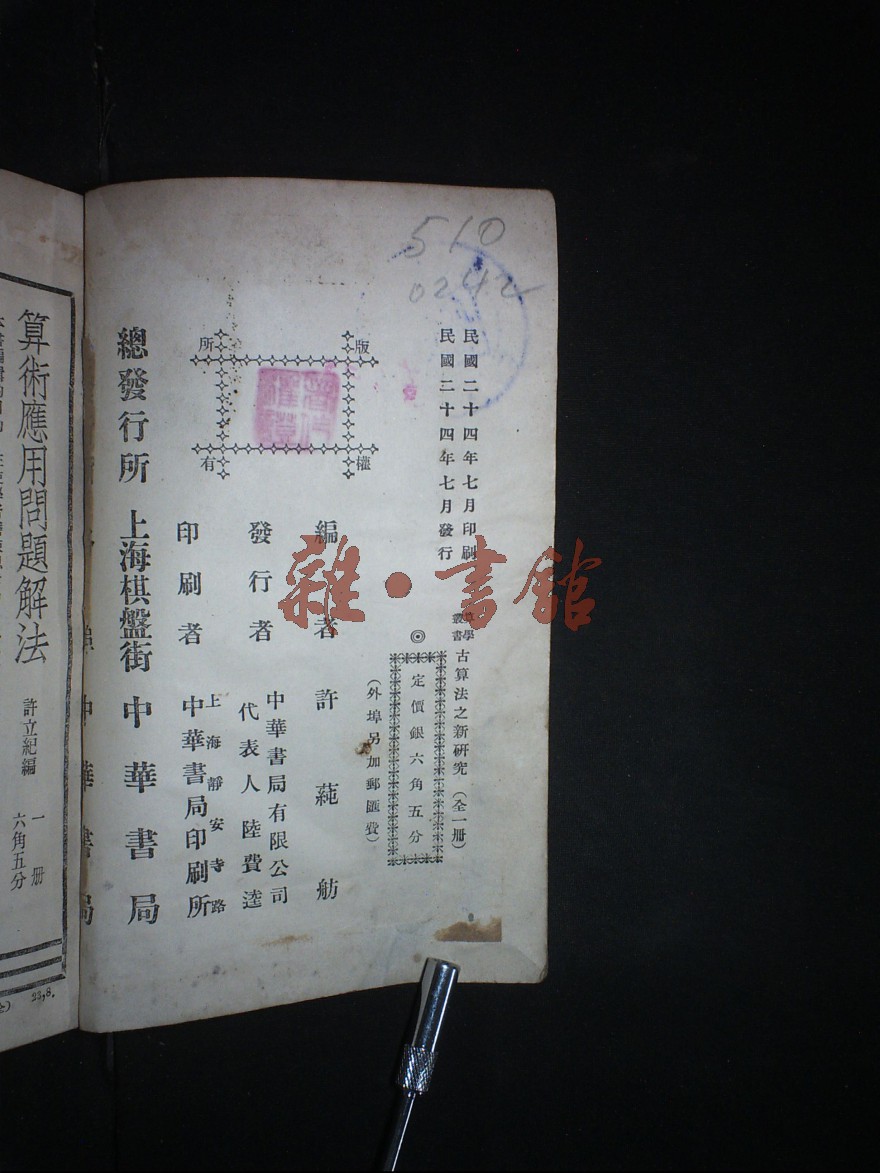 510
0242
民國二十四年七月印刷
民國二十四年七月發行
算學叢書 古算法之新研究(全一册)
◎
定價銀六角五分
(外埠另加郵匯費)
版權所有
編者 許蒓舫
發行者 中華書局有限公司
代表人陸費逵
印刷者 上海靜安寺路
中華書局印刷所
總發行所 上海棋盤街 中華書局
雜·書館
中華書局
算術應用問題解法 許立紀編 一册
六角五分
23,8.